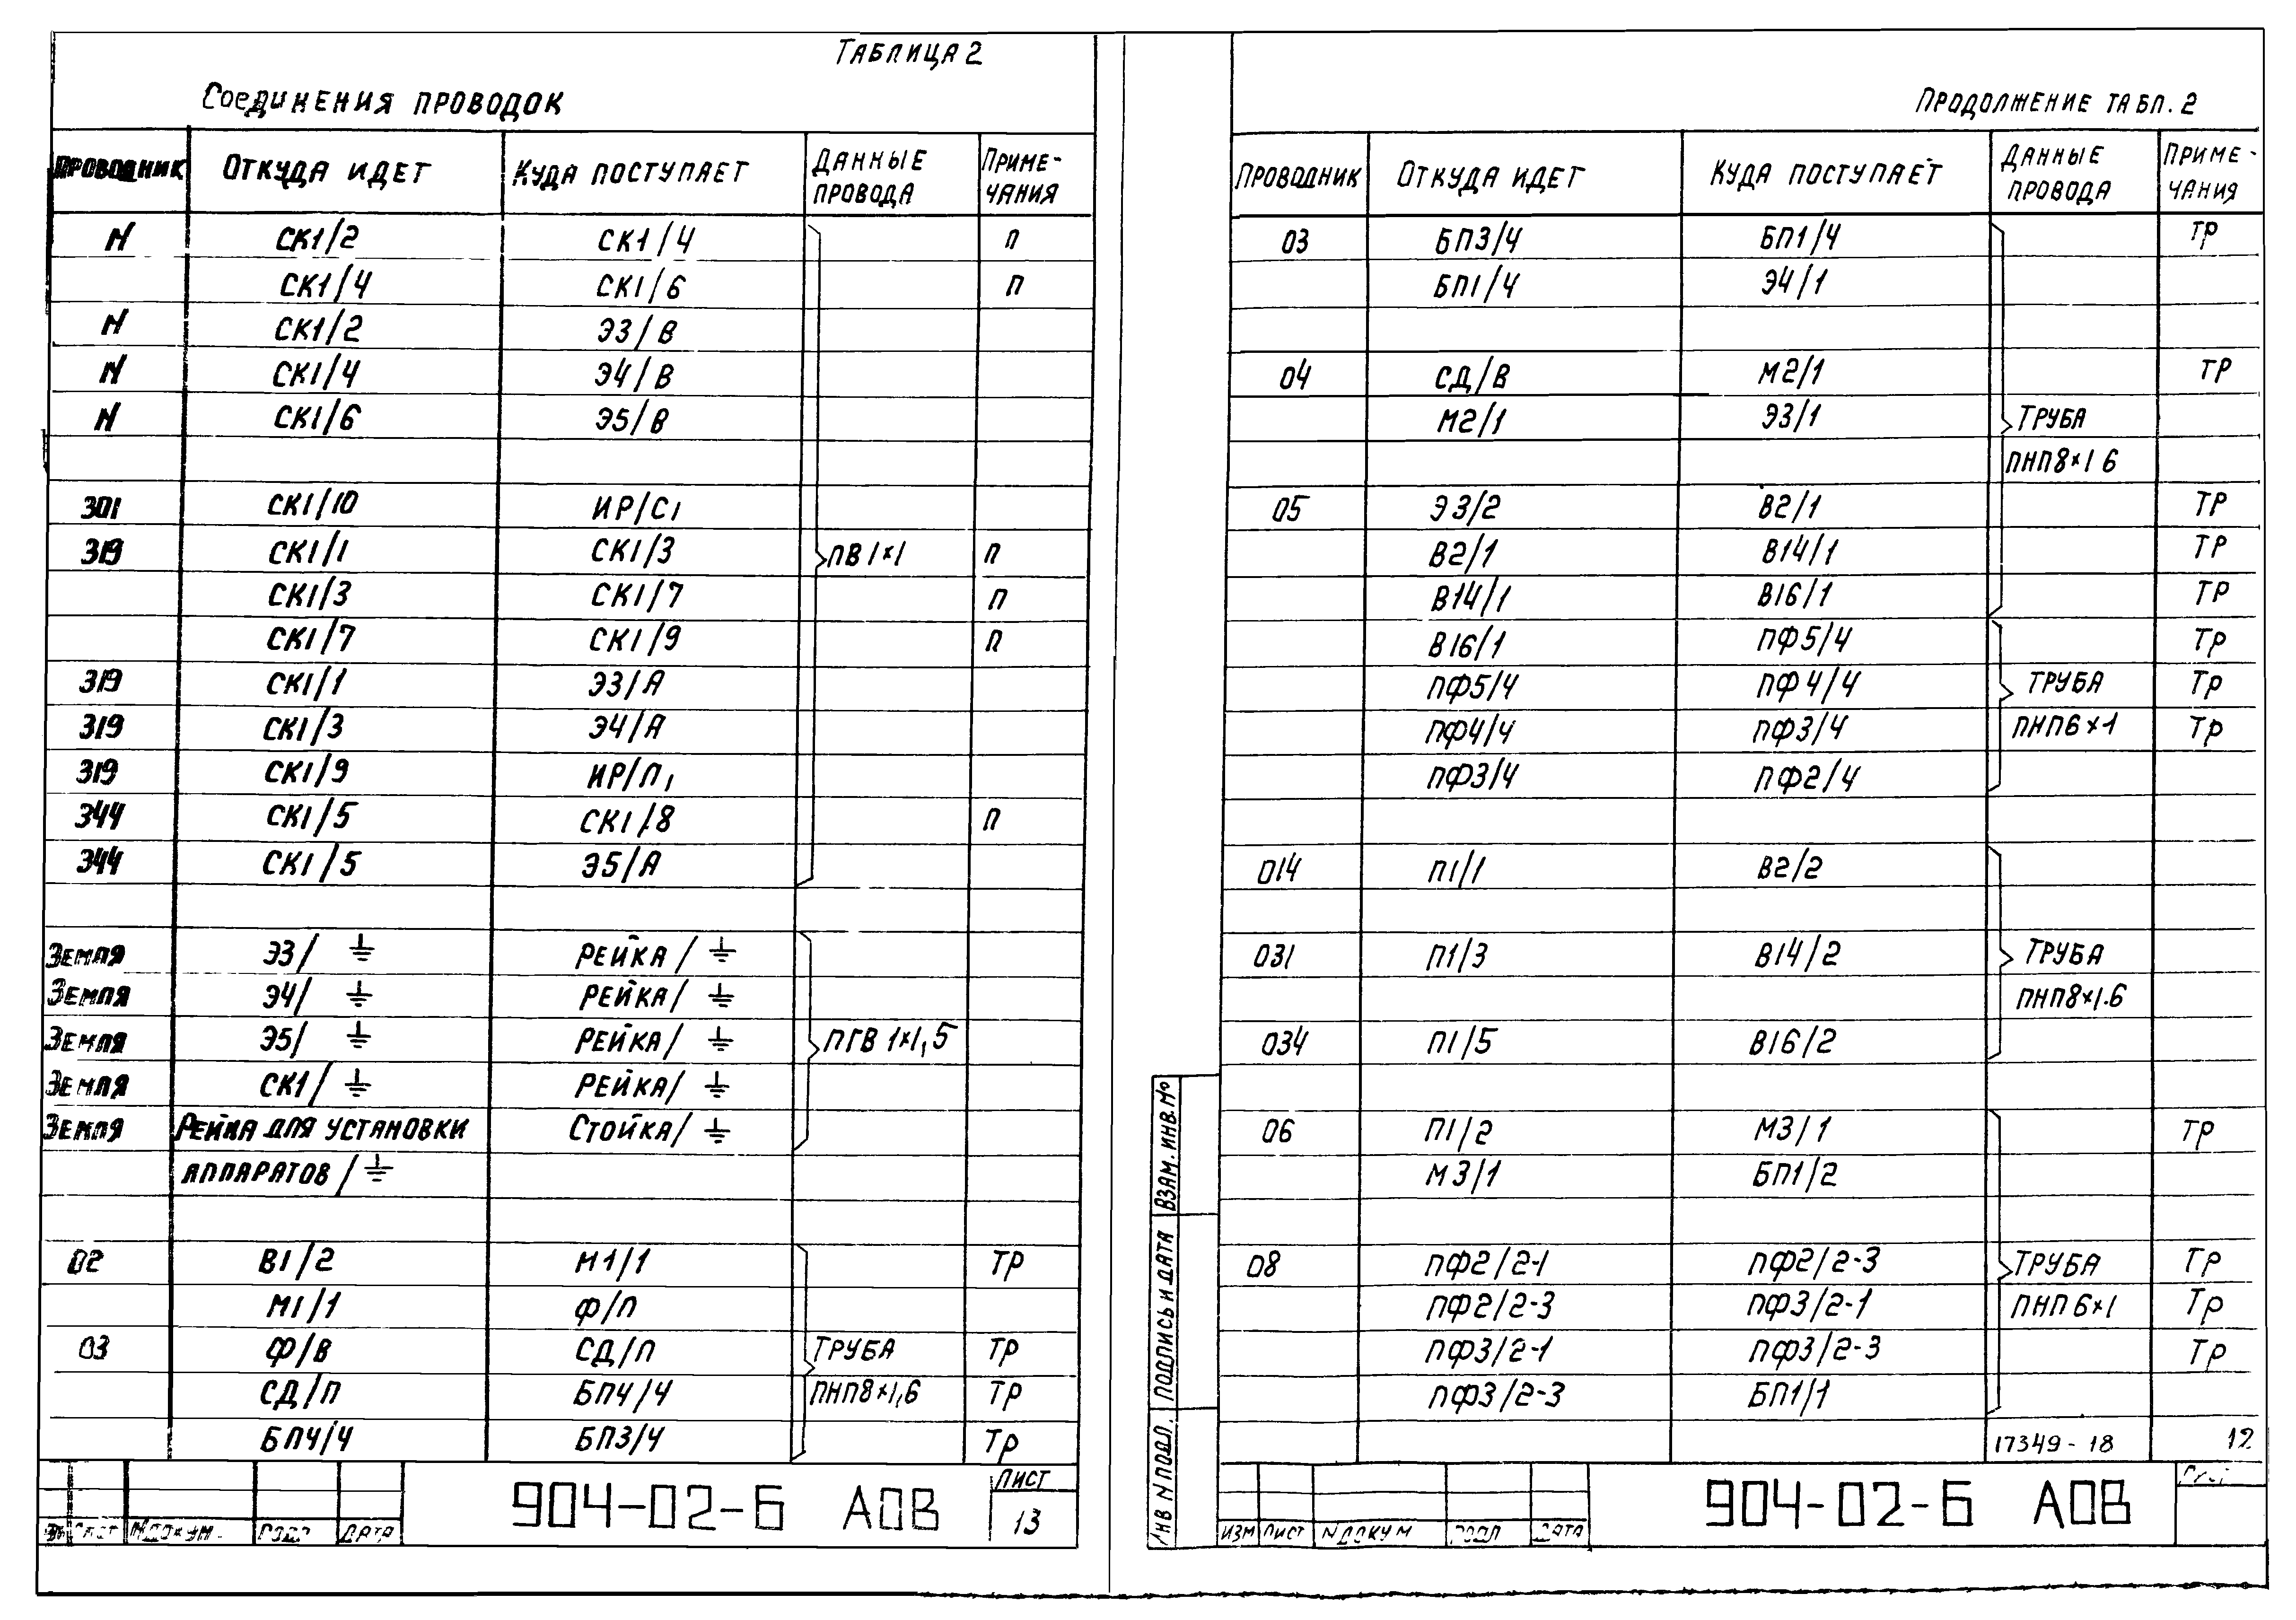 ТАБЛИЦА 2
СОЕДИНЕНИЯ ПРОВОДОК
ПРОВОДНИК ОТКУДА ИДЕТ КУДА ПОСТУПАЕТ ДАННЫЕ ПРОВОДА ПРИМЕ-ЧАНИЯ
N СК1/2 СК1/4 П
СК1/4 СК1/6 П
N СК1/2 Э3/В
N СК1/4 Э4/В
N СК1/6 Э5/В
301 СК1/10 ИР/С1
319 СК1/1 СК1/3 ПВ 1×1 П
СК1/3 СК1/7 П
СК1/7 СК1/9 П
319 СК1/1 Э3/А
319 СК1/3 Э4/А
319 СК1/9 ИР/П1
344 СК1/5 СК1/8 П
344 СК1/5 Э5/А
ЗЕМЛЯ Э3/⏚ РЕЙКА/⏚
ЗЕМЛЯ Э4/⏚ РЕЙКА/⏚
ЗЕМЛЯ Э5/⏚ РЕЙКА/⏚ ПГВ 1×1,5
ЗЕМЛЯ СК1/⏚ РЕЙКА/⏚
ЗЕМЛЯ РЕЙКА ДЛЯ УСТАНОВКИ СТОЙКА/⏚
АППАРАТОВ/⏚
02 В1/2 М1/1 ТР
М1/1 Ф/П
03 Ф/В СД/П ТРУБА ТР
СД/П БП4/4 ПНП8×1,6 ТР
БП4/4 БП3/4 ТР
904-02-Б АОВ
ЛИСТ
13
ЛИСТ N ДОКУМ. ПОДП ДАТА
ПРОДОЛЖЕНИЕ ТАБЛ. 2
ПРОВОДНИК ОТКУДА ИДЕТ КУДА ПОСТУПАЕТ ДАННЫЕ ПРОВОДА ПРИМЕ-ЧАНИЯ
03 БП3/4 БП1/4 ТР
БП1/4 Э4/1
04 СД/В М2/1 ТР
М2/1 Э3/1 ТРУБА
ПНП8×1 6
05 Э3/2 В2/1 ТР
В2/1 В14/1 ТР
В14/1 В16/1 ТР
В16/1 ПФ5/4 ТР
ПФ5/4 ПФ4/4 ТРУБА ТР
ПФ4/4 ПФ3/4 ПНП6×1 ТР
ПФ3/4 ПФ2/4
014 П1/1 В2/2
031 П1/3 В14/2 ТРУБА
ПНП8×1.6
034 П1/5 В16/2
06 П1/2 М3/1 ТР
М3/1 БП1/2
08 ПФ2/2-1 ПФ2/2-3 ТРУБА ТР
ПФ2/2-3 ПФ3/2-1 ПНП 6×1 ТР
ПФ3/2-1 ПФ3/2-3 ТР
ПФ3/2-3 БП1/1
17349-18 12
904-02-Б АОВ
ИЗМ ЛИСТ N ДОКУМ ПОДП ДАТА
ИНВ N ПОДЛ. ПОДПИСЬ И ДАТА ВЗАМ. ИНВ. №